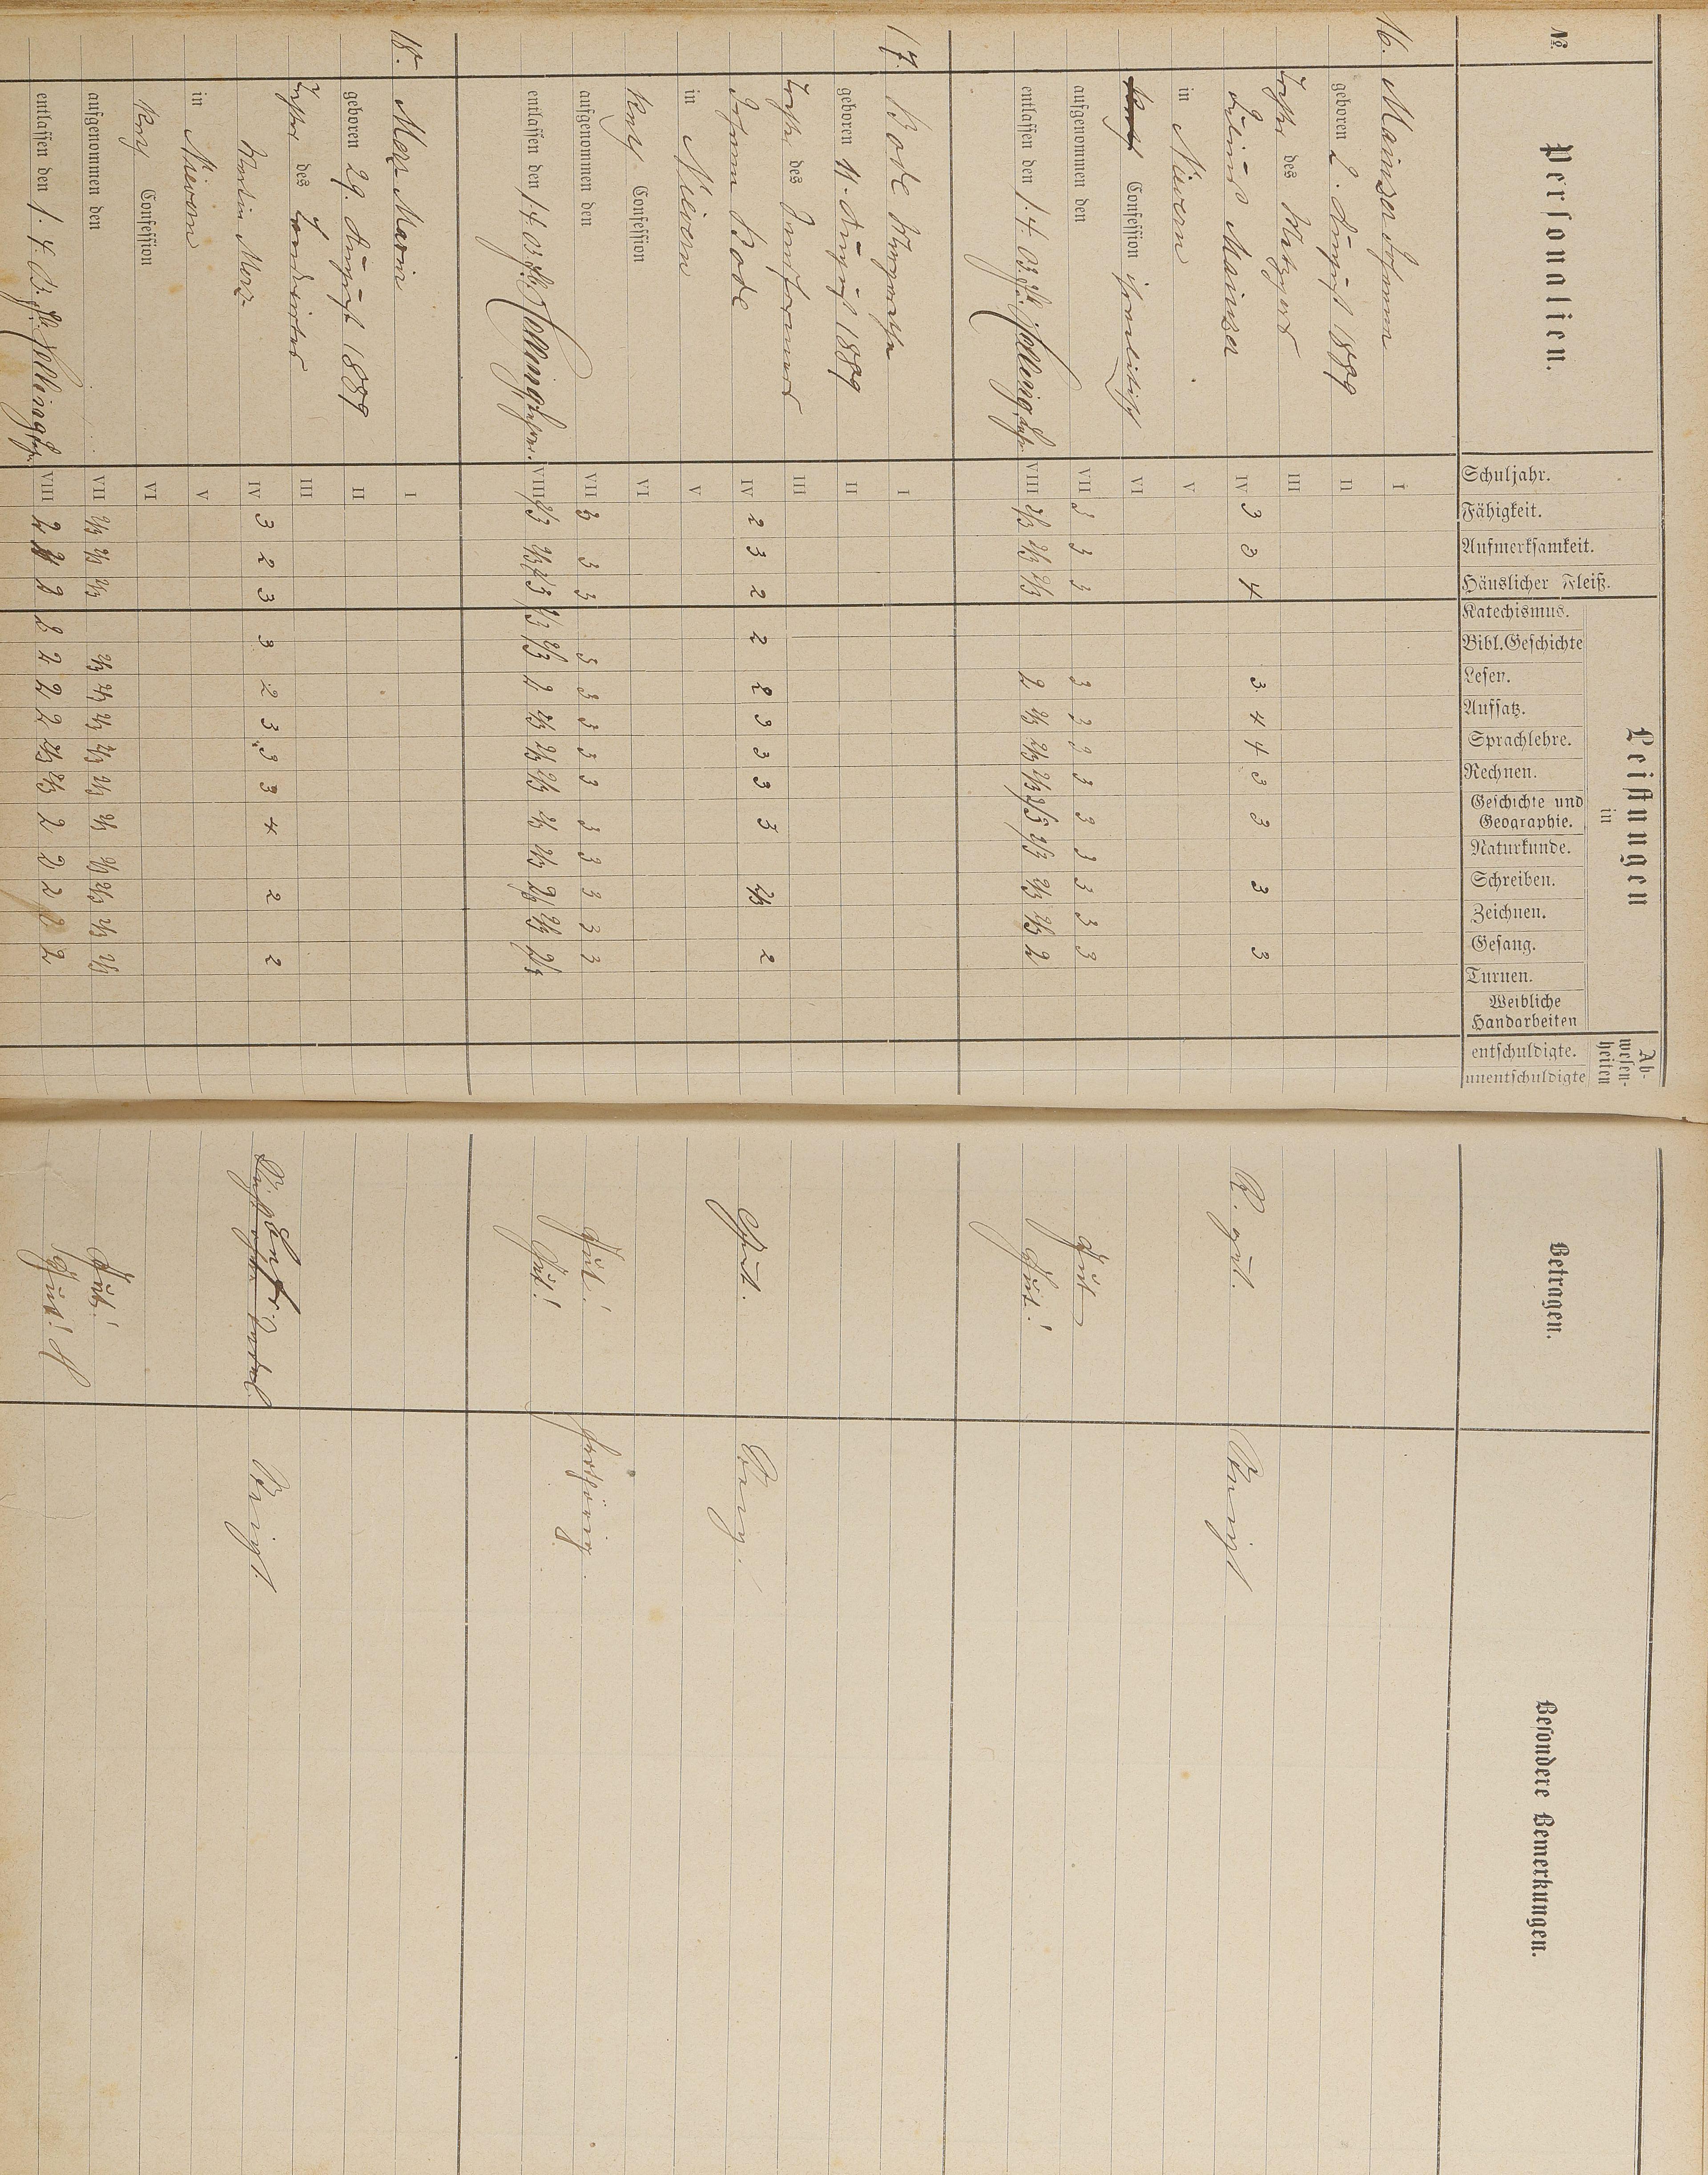 №
Personalien.
Schuljahr.
Fähigkeit.
Aufmerksamkeit.
Häuslicher Fleiß.
Leistungen
in
Katechismus.
Bibl. Geschichte
Lesen.
Aufsatz.
Sprachlehre.
Rechnen.
Geschichte und
Geographie.
Naturkunde.
Schreiben.
Zeichnen.
Gesang.
Turnen.
Weibliche
Handarbeiten
Ab-
wesen-
heiten
entschuldigte.
unentschuldigte
Betragen.
Besondere Bemerkungen.
16. Mainzer Johanna I
geboren 2. August 1889 II
Tochter des Metzgers III
Julius Mainzer IV 3 3 4 3 4 4 3 3 3 3 gut.
in Nievern V
Confession israelitisch VI
aufgenommen den VII 3 3 3 3 3 3 3 3 3 3 3 3 gut
entlassen den 1.4.03. VIII 2/3 2/3 2/3 2 2/3 2/3 2/3 2/3 2/3 2/3 2/3 2 Gut!
17. Bode Margaretha I
geboren 11. August 1889 II
Tochter des III
Johann Bode IV 2 3 2 2 2 3 3 3 3 2/3 2 Gut.
in Nievern V
Kath Confession VI
aufgenommen den VII 3 3 3 3 3 3 3 3 3 3 3 3 3 Gut!
entlassen den 1.4.03. VIII 2/3 2/3 2/3 2/3 2/3 2 2/3 2/3 2/3 2/3 2/3 2/3 2/3 2/3 Gut!
18. Merz Maria I
geboren 29. August 1889 II
Tochter des Landwirtes III
Merz IV 3 2 3 3 2 3 3 3 4 2 2
in Nievern V
Kath Confession VI
aufgenommen den VII 2/3 2/3 2/3 2/3 2/3 2/3 2/3 2/3 2/3 2/3 2/3 2/3 2/3 Gut!
entlassen den 1.4.03. VIII 2 2 2 2 2 2 2/3 2/3 2 2 2 2 2 Gut!